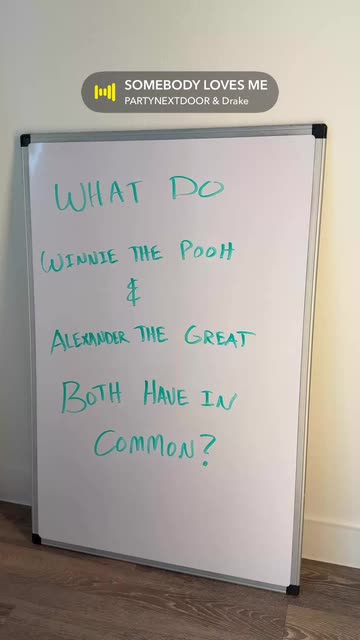 SOMEBODY LOVES ME
PARTYNEXTDOOR & Drake
WHAT DO
WINNIE THE POOH
&
ALEXANDER THE GREAT
BOTH HAVE IN
COMMON?